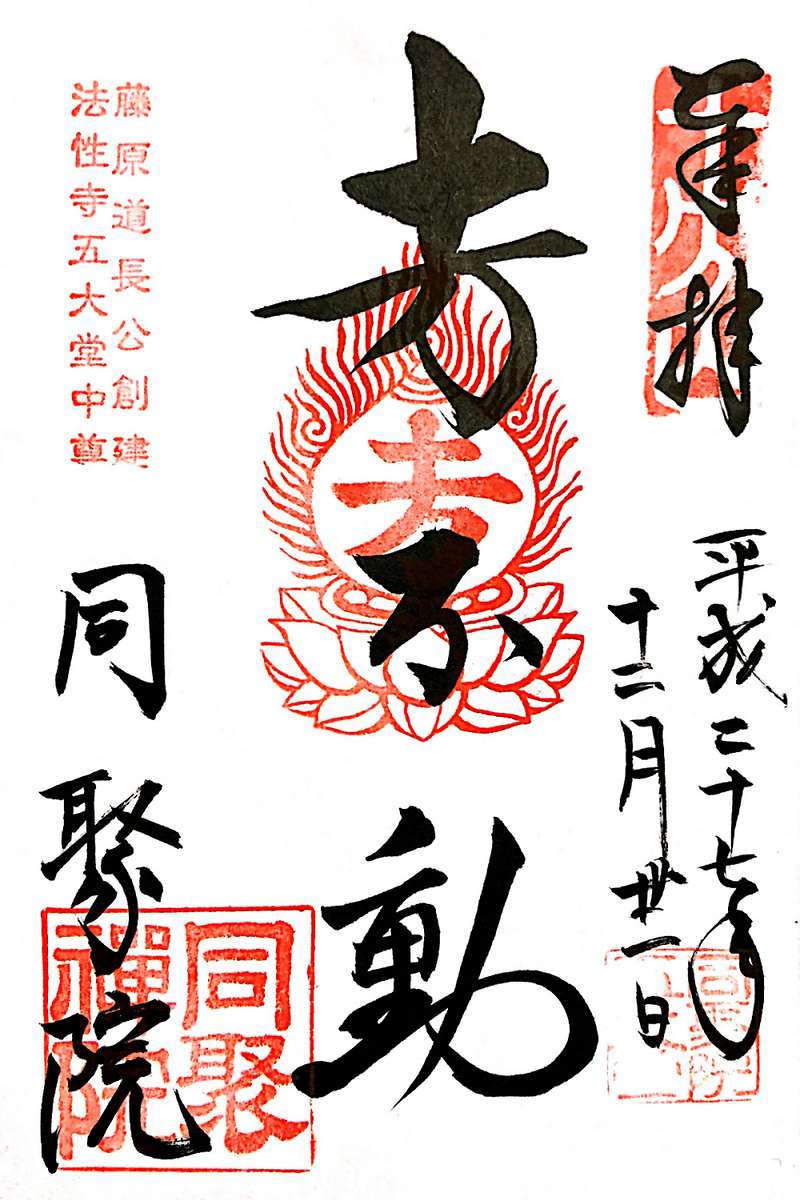 奉拝
平成二十七年
十二月廿一日
不動
藤原道長公創建
法性寺五大堂中尊
同聚院
同聚
禪院